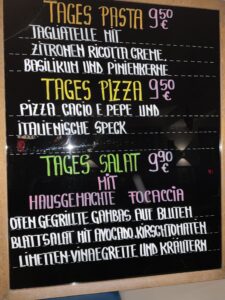 TAGES PASTA 9,50 €
TAGLIATELLE MIT
ZITRONEN RICOTTA CREME,
BASILIKUM UND PINIENKERNE
TAGES PIZZA 9,50 €
PIZZA CACIO E PEPE UND
ITALIENISCHE SPECK
TAGES SALAT 9,90 €
MIT
HAUSGEMACHTE FOCACCIA
OFEN GEGRILLTE GAMBAS AUF BLUTEN
BLATTSALAT MIT AVOCADO, KIRSCHTOMATEN
LIMETTEN-VINAIGRETTE UND KRÄUTERN